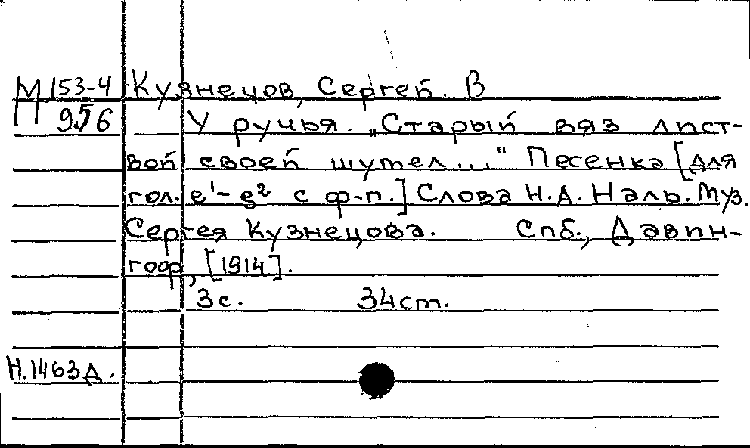 М 153-4 Кузнецов, Сергей. В
П 956 У ручья. „Старый вяз лист-
вой своей шумел...“ Песенка [для
гол. e¹-g² с ф-п.] Слова Н.А. Наль. Муз.
Сергея Кузнецова. Спб., Давин-
гоф, [1914].
3с. 34cm.
Н.1463д.